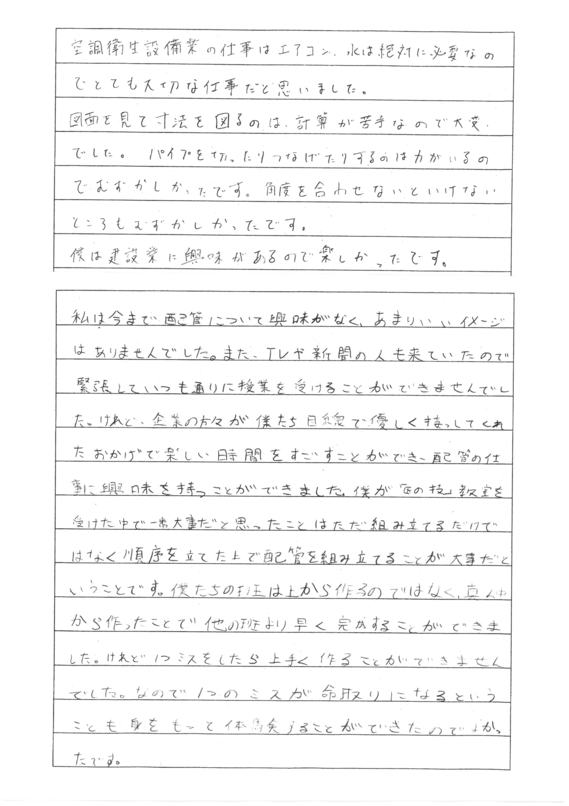 空調衛生設備業の仕事はエアコン、水は絶対に必要なの
でとても大切な仕事だと思いました。
図面を見て寸法を図るのは、計算が苦手なので大変
でした。パイプを切ったりつなげたりするのは力がいるの
でむずかしかったです。角度を合わせないといけない
ところもむずかしかったです。
僕は建設業に興味があるので楽しかったです。
私は今まで配管について興味がなく、あまりいいイメージ
はありませんでした。また、TVや新聞の人も来ていたので
緊張していつも通りに授業を受けることができませんでし
た。けれど、企業の方々が僕たち目線で優しく接してくれ
たおかげで楽しい時間をすごすことができ、配管の仕
事に興味を持つことができました。僕が「匠の技」教室を
受けた中で一番大事だと思ったことはただ組み立てるだけで
はなく順序を立てた上で配管を組み立てることが大事だと
いうことです。僕たちの班は上から作るのではなく、真ん中
から作ったことで他の班より早く完成することができま
した。けれど1つミスをしたら上手く作ることができません
でした。なので1つのミスが命取りになるという
ことも身をもって体験することができたのでよかっ
たです。